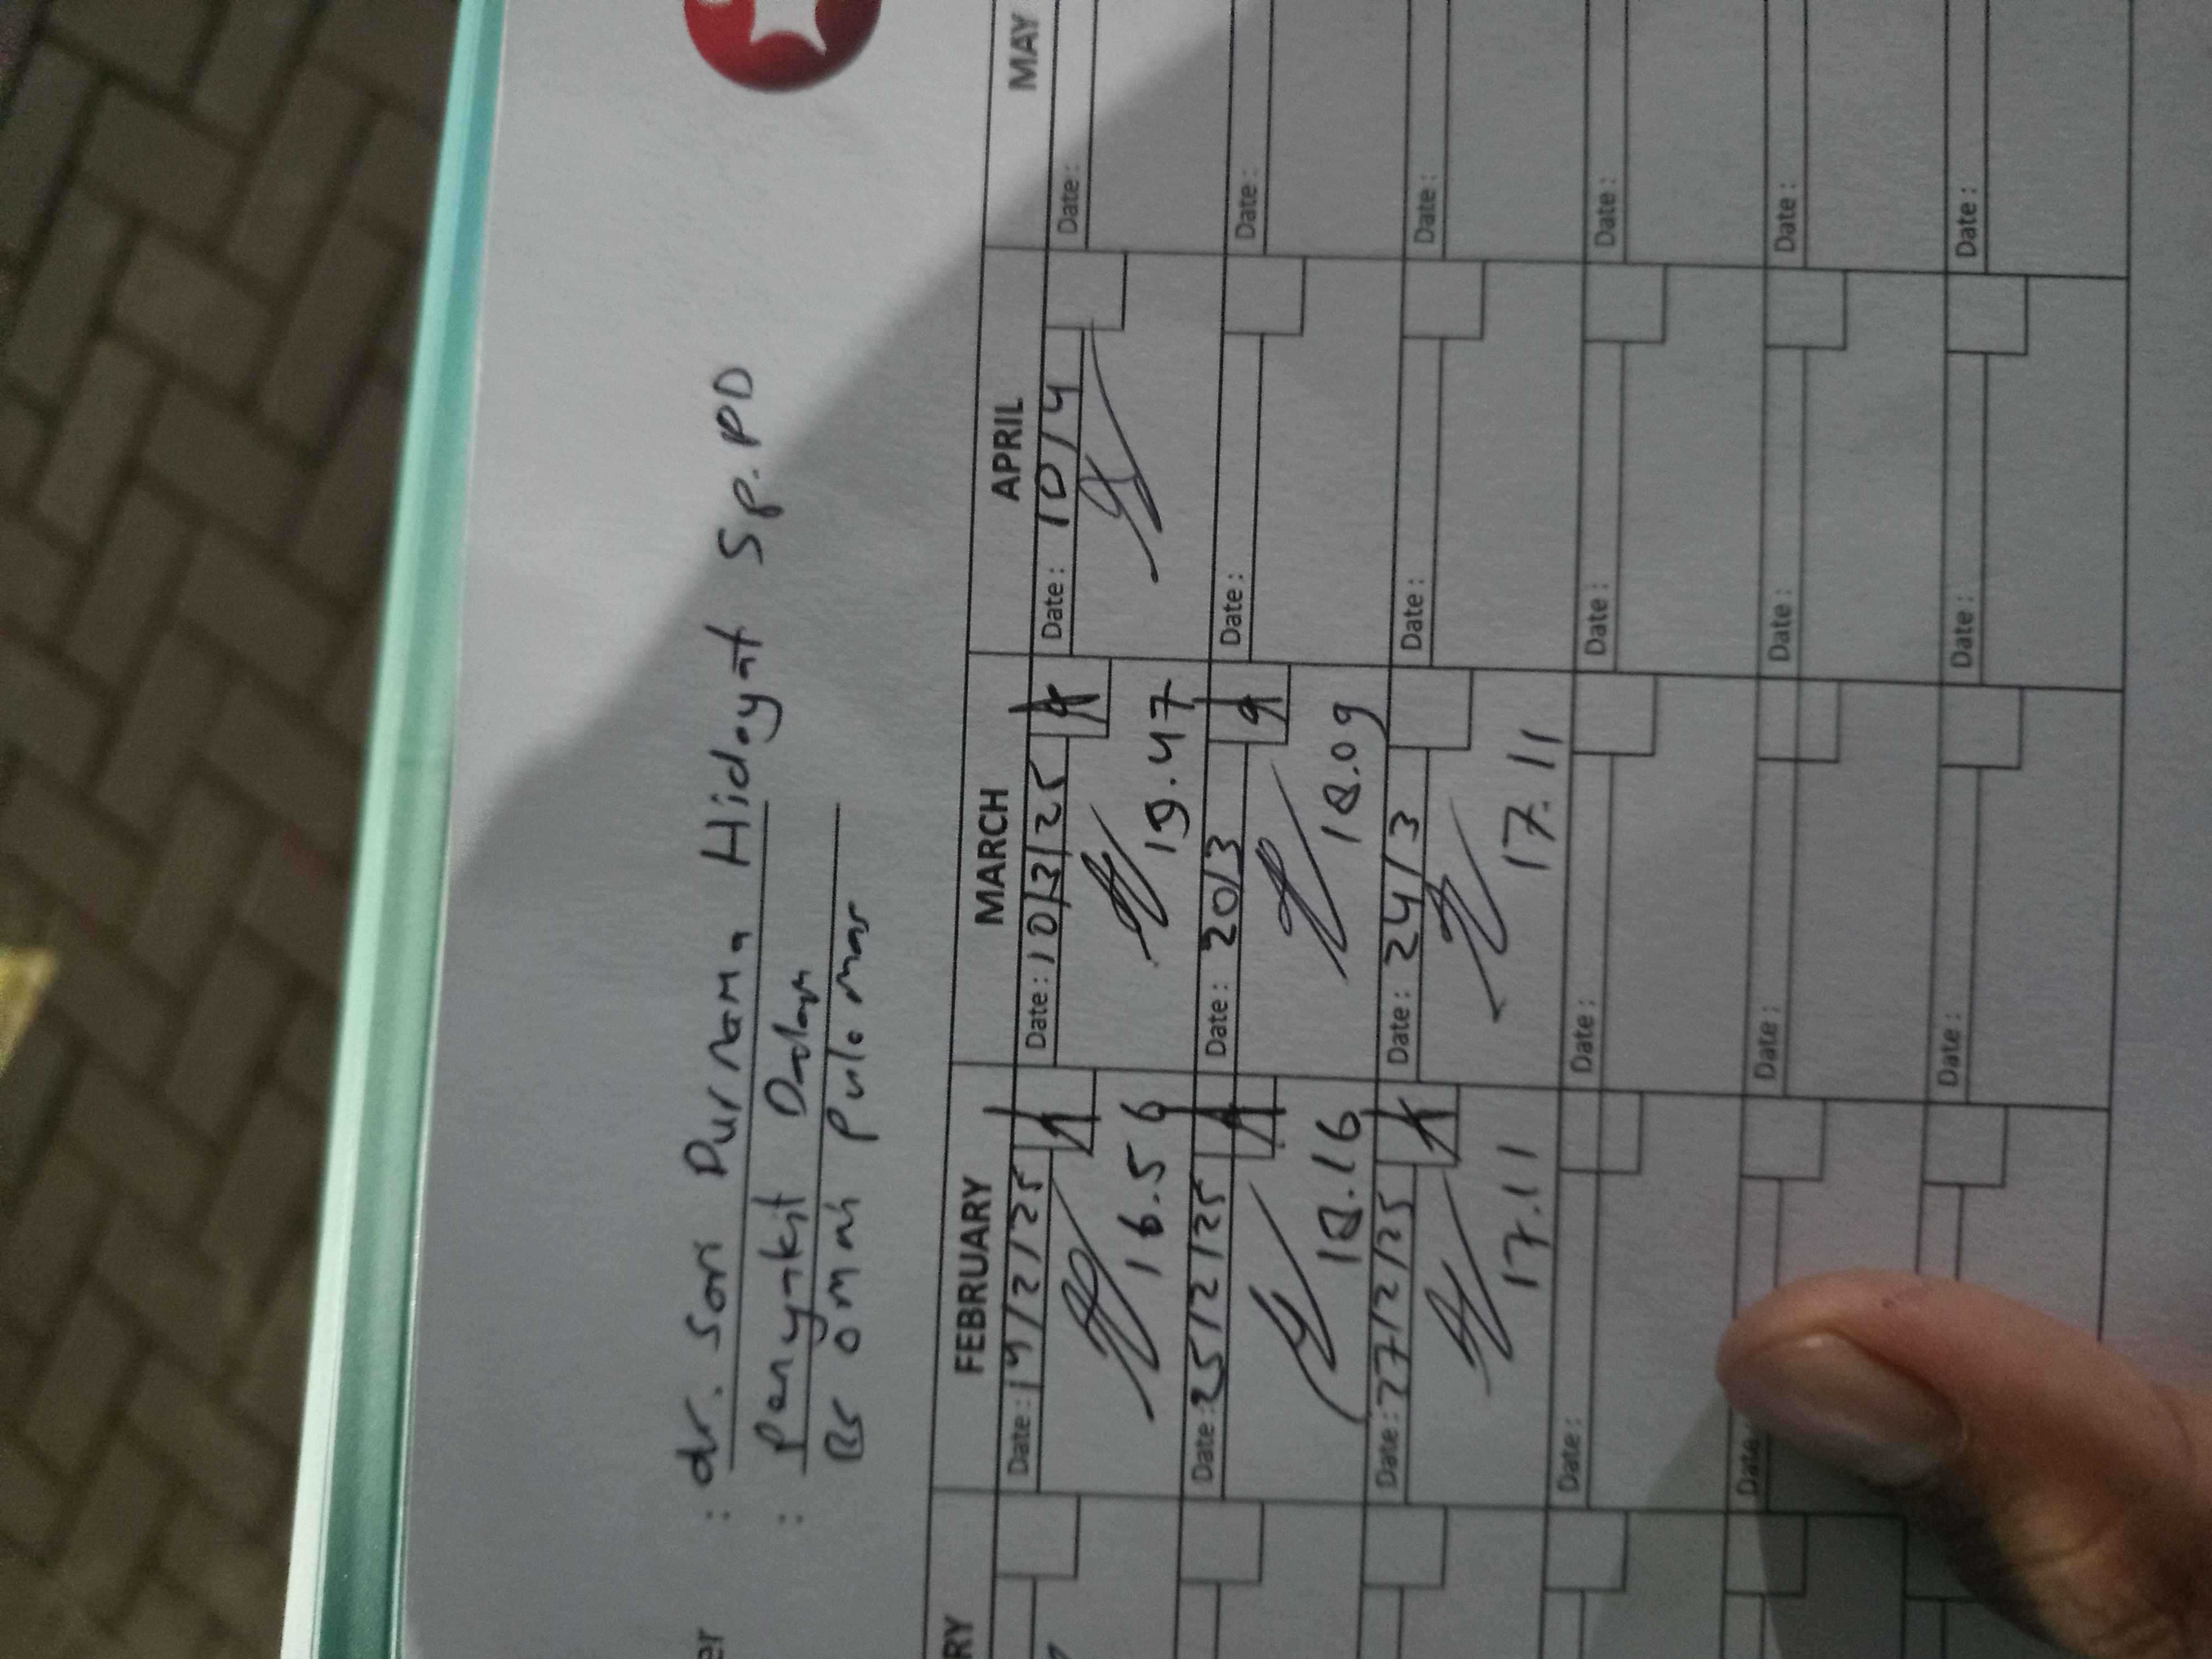 er : dr. Sori Purnama Hidayat Sp.PD
: Penyakit Dalam
RS Omni Pulo mas
RY FEBRUARY MARCH APRIL MAY
Date: 19/2/25 Date: 10/3/25 Date: 10/4 Date:
16.56 19.47
Date: 25/2/25 Date: 20/3 Date: Date:
18.16 18.09
Date: 27/2/25 Date: 24/3 Date: Date:
17.11 17.11
Date: Date: Date: Date:
Date: Date: Date: Date:
Date: Date: Date: